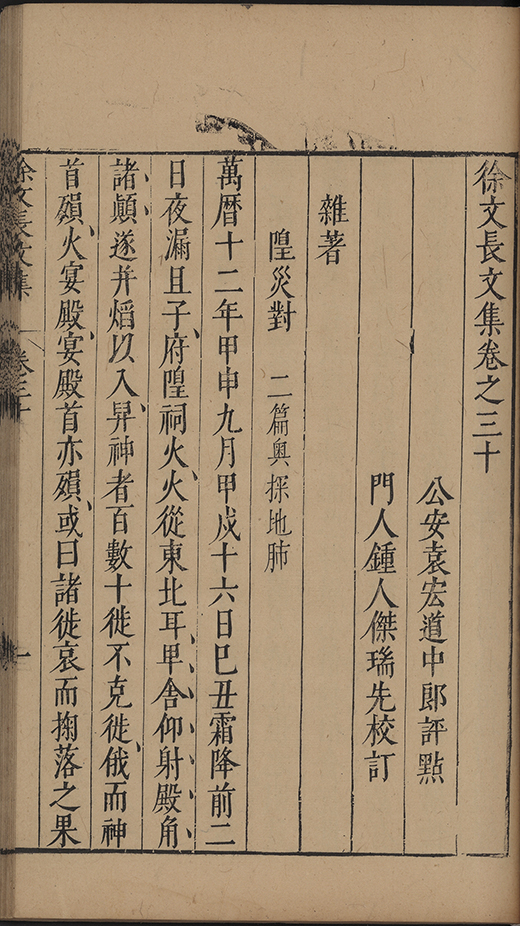 徐文長文集卷之三十
公安袁宏道中郎評點
門人鍾人傑瑞先校訂
雜著
隍災對 二篇奥探地肺
萬曆十二年甲申九月甲戍十六日巳丑霜降前二
日夜漏且子、府隍祠火、火從東北耳、甲舍仰射殿角、
諸顛、遂并熖以入、昇神者百數十徙不克徙、俄而神
首殞、火宴殿、宴殿首亦殞、或曰諸徙哀而掬落之果
徐文長文集 卷三十 一